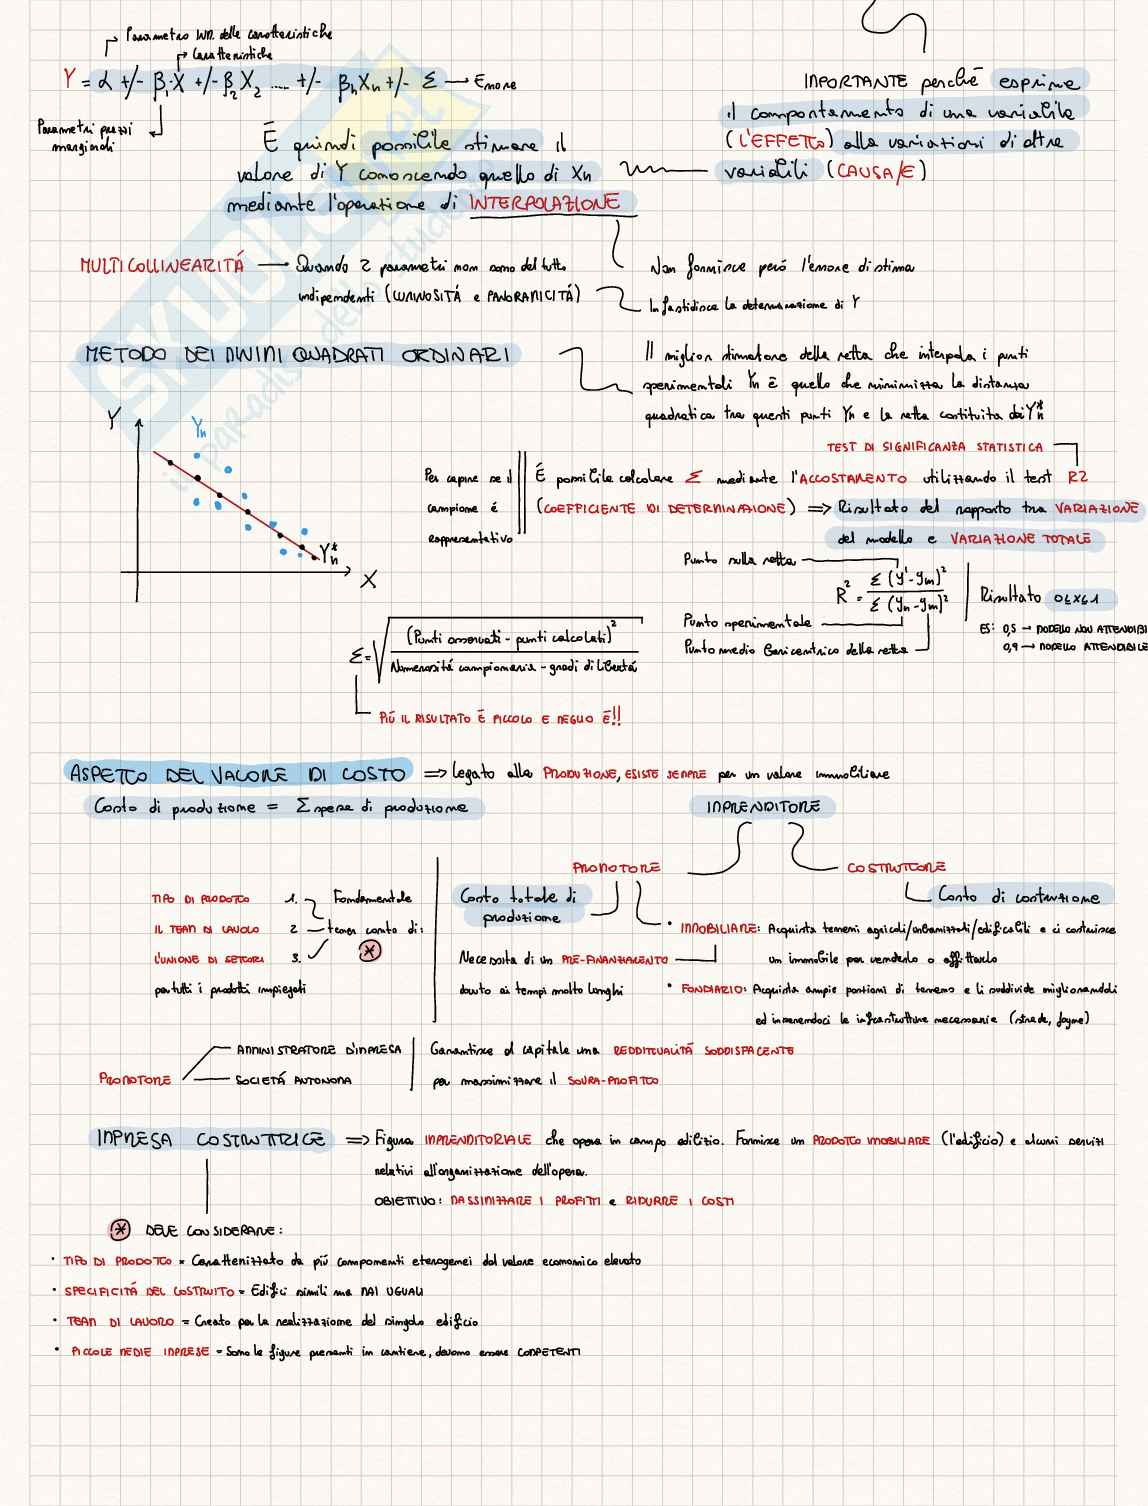 Parametro UN. delle caratteristiche
Caratteristiche
Y = α +/- β₁·X +/- β₂X₂ ..... +/- βₙXₙ +/- Σ → Errore
Parametri prezzi
marginali
IMPORTANTE perché esprime
il comportamento di una variabile
(L'EFFETTO) alla variazioni di altre
variabili (CAUSA/E)
È quindi possibile stimare il
valore di Y conoscendo quello di Xn
mediante l'operazione di INTERPOLAZIONE
MULTICOLLINEARITÁ → Quando 2 parametri non sono del tutto
indipendenti (LUMINOSITÁ e PANORAMICITÁ)
Non fornisce peró l'errore di stima
Infastidisce la determinazione di Y
METODO DEI MINIMI QUADRATI ORDINARI
Il miglior stimatore della retta che interpola i punti
sperimentali Yn è quello che minimizza la distanza
quadratica tra questi punti Yn e la retta costituita dai Yn*
Y
Yn
Yn*
X
TEST DI SIGNIFICANZA STATISTICA
Per capire se il
campione é
rappresentativo
É possibile calcolare Σ mediante l'ACCOSTAMENTO utilizzando il test R2
(COEFFICIENTE DI DETERMINAZIONE) ⇒ Risultato del rapporto tra VARIAZIONE
del modello e VARIAZIONE TOTALE
Punto sulla retta
R² = Σ (y'-ym)² / Σ (yn-ym)²
Punto sperimentale
Punto medio Baricentrico della retta
Risultato 0≤X≤1
ES: 0,5 → MODELLO NON ATTENDIBI
0,9 → MODELLO ATTENDIBILE
Σ = √ (Punti osservati - punti calcolati)² / Numerositá campionaria - gradi di libertá
PIÚ IL RISULTATO É PICCOLO E MEGLIO É!!
ASPETTO DEL VALORE DI COSTO ⇒ legato alla PRODUZIONE, ESISTE SEMPRE per un valore immobiliare
Costo di produzione = Σ spese di produzione
IMPRENDITORE
PROMOTORE
COSTRUTTORE
Costo totale di
produzione
Costo di costruzione
TIPO DI PRODOTTO 1.
IL TEAM DI LAVORO 2
L'UNIONE DI SETTORI 3.
per tutti i prodotti impiegati
Fondamentale
tener conto di:
*
Necessita di un PRE-FINANZIAMENTO
dovuto ai tempi molto lunghi
• IMMOBILIARE: Acquista terreni agricoli/urbanizzati/edificabili e ci costruisce
un immobile per venderlo o affittarlo
• FONDIARIO: Acquista ampie porzioni di terreno e li suddivide migliorandoli
ed inserendoci le infrastrutture necessarie (strade, fogne)
PROMOTORE
AMMINISTRATORE D'IMPRESA
SOCIETÁ AUTONOMA
Garantisce al capitale una REDDITUALITÁ SODDISFACENTE
per massimizzare il SOVRA-PROFITTO
IMPRESA COSTRUTTRICE ⇒ Figura IMPRENDITORIALE che opera in campo edilizio. Fornisce un PRODOTTO IMMOBILIARE (l'edificio) e alcuni servizi
relativi all'organizzazione dell'opera.
OBIETTIVO: MASSIMIZZARE I PROFITTI e RIDURRE I COSTI
* DEVE CONSIDERARE:
• TIPO DI PRODOTTO = Caratterizzato da piú componenti eterogenei dal valore economico elevato
• SPECIFICITÁ DEL COSTRUITO = Edifici simili ma MAI UGUALI
• TEAM DI LAVORO = Creato per la realizzazione del singolo edificio
• PICCOLE MEDIE IMPRESE = Sono le figure presenti in cantiere, devono essere COMPETENTI